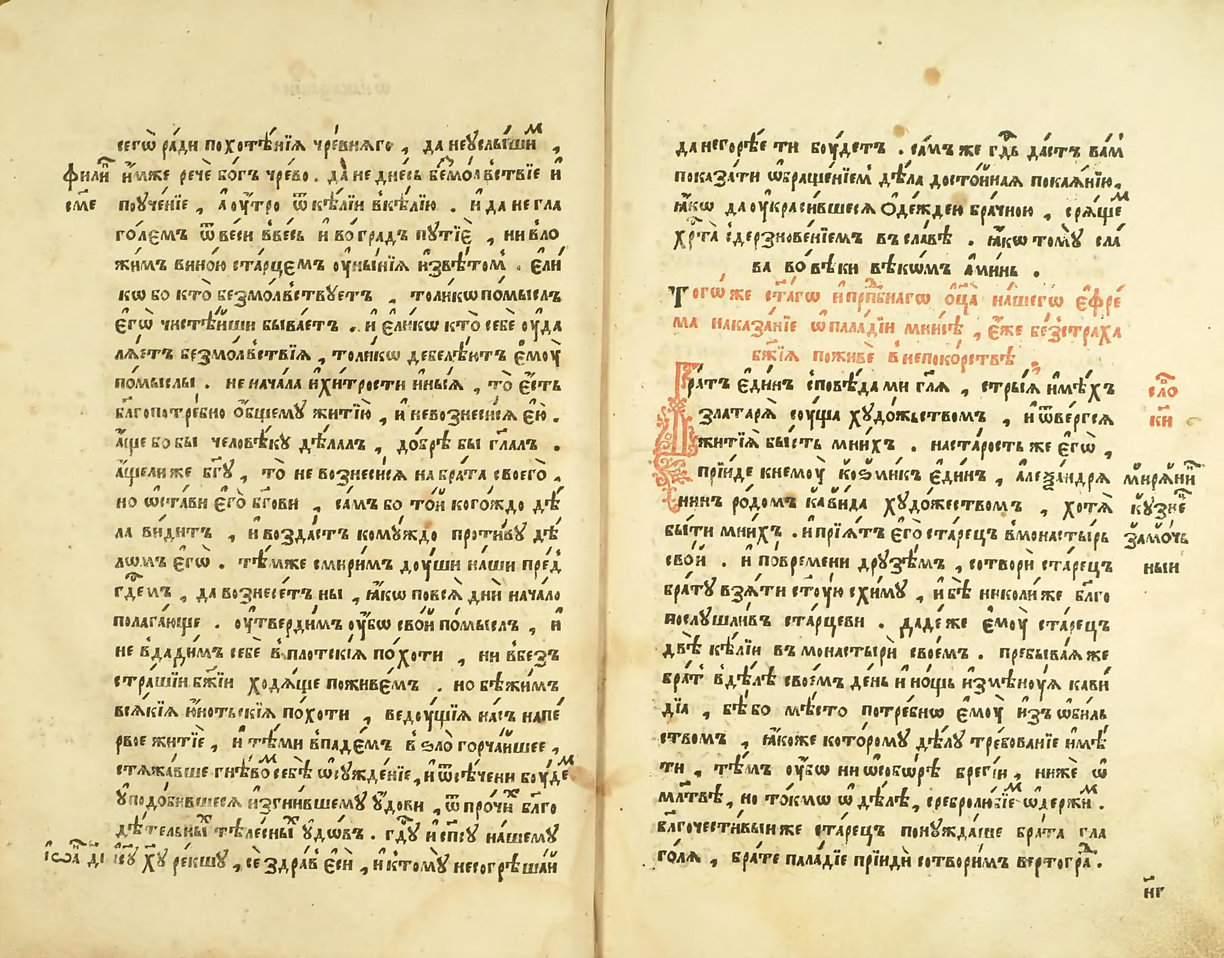 сегѡ̀ ра́ди похотѣ́нїѧ чре́внѧгѡ , да неꙋслы́шим ,
фили҃п и҆́мже речѐ бо́гъ чре́во . да̀ не дне́сь безмо́лвствїе и҆
е҃ме поꙋче́нїе , а҆ ѹ҆́тро ѿ кѣ́лїи в кѣ́лїю . и҆ да не гла
го́лемъ ѿ ве́си в ве́сь и҆ во гра́дъ пꙋтїѐ , ни вло
жи́мъ вино́ю ста́рцемъ ѹ҆ны́нїѧ и҆звѣ́том . є҆ли́
кѡ бо кто̀ безмо́лвствꙋетъ , толи́кѡ по́мыслъ
є҆гѡ̀ чистѣ́йши быва́етъ . и҆ є҆ли́кѡ кто̀ себѐ ѹ҆да
лѧ́етъ безмо́лвствїѧ , толи́кѡ дебелѣ́ютъ є҆мꙋ̀
по́мыслы . не нача́ла и҆ хи́трости и҆ны́ѧ , то̀ є҆́сть
бл҃гопотре́бно ѻ҆́бщемꙋ житїю̀ , и҆ не вознесі́сѧ є҆́ю .
а҆́ще бо бы человѣ́кꙋ дѣ́лалъ , до́брѣ бы гл҃алъ .
а҆́ще ли же бг҃ꙋ , то̀ не вознесі́сѧ на бра́та своего̀ ,
но ѡ҆ста́ви є҆го̀ бг҃ови , са́мъ бо то́й кого́ждо дѣ́
ла ви́дитъ , и҆ возда́стъ комꙋ́ждо проти́вꙋ дѣ́
лѡмъ є҆гѡ̀ . тѣ́мже смири́мъ дꙋ́ши на́ша пред
гдⷭ҇емъ , да вознесе́тъ ны , ꙗ҆́кѡ по всѧ̀ дни̑ нача́ло
полага́юще . ѹ҆тверди́мъ ѹ҆́бѡ сво́й по́мыслъ , и҆
не вдади́мъ себѐ в пло́тскїѧ по́хоти , ни в без
стра́шїи бж҃їи ходѧ́ще поживе́мъ . но бѣжи́мъ
всѧ́кїѧ ю҆́нотьскїѧ по́хоти , ведꙋ́щїѧ на́съ на пе́
рвое житїѐ , и҆ тѣ́ми впаде́мъ в ѕло̀ горча́йшее ,
стѧжа́вше гнѣ́вом себѣ̀ ѡ҆сꙋжде́нїе , и҆ ѿсѣ́чени бꙋ́дем
ꙋ҆подо́бившесѧ и҆згни́вшемꙋ ꙋ҆́дови , ѿ про́чих бл҃го
дѣ́тельных тѣле́сных ꙋ҆дѡ́въ . гдⷭ҇ꙋ и҆ сп҃сꙋ на́шемꙋ
і҆ѡа҃ д҃і і҆с҃ꙋ х҃ꙋ ре́кшꙋ , сѐ здра́в є҆сѝ , и҆ ктомꙋ̀ не согрѣша́й
да не го́рѣе ти бꙋ́детъ . са́мъ же гдⷭ҇ь да́стъ ва́м
показа́ти ѡ҆браще́нїем дѣ́ла досто́йнаѧ покаѧ́нїю ,
ꙗ҆́кѡ да ѹ҆краси́вшесѧ ѻ҆де́ждею бра́чною , срѧ́щем
хрⷭ҇та̀ с дерзнове́нїемъ въ сла́вѣ . ꙗ҆́кѡ томꙋ̀ сла́
ва во вѣ́ки вѣкѡ́мъ а҆ми́нь .
Тогѡ́же ст҃а́гѡ и҆ прпⷣбнагѡ ѻ҆ц҃а̀ на́шегѡ є҆фре́
ма наказа́нїе ѡ҆ пала́дїи мни́сѣ , є҆́же без стра́ха
бж҃їѧ поживѐ в непоко́рствѣ .
Бра́тъ є҆ди́нъ сповѣ́да ми гл҃ѧ , стры́ѧ и҆мѣ́хъ сло҃
злата́рѧ сꙋ́ща хꙋдо́жьством , и҆ ѿве́ргсѧ к҃и
житїѧ̀ бы́сть мни́хъ . на ста́рость же є҆гѡ̀ ,
прїи́де к немꙋ̀ ко́смикъ є҆ди́нъ , а҆леѯа́ндрѧ мирѧ́нин
нинъ ро́домъ кави́да хꙋдо́жеством , хотѧ̀ кꙋзне҃
бы́ти мни́хъ . и҆ прїѧ́тъ є҆го̀ ста́рецъ в монасты́рь замо́чь
сво́й . и҆ по вре́мени дрꙋзѣ́мъ , сотворѝ ста́рецъ ный
бра́тꙋ взѧ́ти ст҃ꙋ́ю схи́мꙋ , и҆ бѣ̀ николи́же бл҃го
послꙋшли́въ ста́рцеви . даде́же є҆мꙋ̀ ста́рецъ
двѣ̀ кѣ́лїи въ монастырѝ свое́мъ . пребыва́ѧ же
бра́т в дѣ́лѣ свое́мъ де́нь и҆ но́щь и҆змѣнꙋ́ѧ кави
ді́а , бѣ́ бо мѣ́сто потре́бнѡ є҆мꙋ̀ и҆зъ ѡ҆би́ль
ством , ꙗ҆́коже кото́ромꙋ дѣ́лꙋ тре́бованїе и҆мѣ́
ти , тѣ́мъ ѹ҆́бѡ ни ѡ҆ собо́рѣ брегі́й , нижѐ ѡ҆
мл҃твѣ , но то́кмѡ ѡ҆ дѣ́лѣ , сребролю́бїем ѡ҆держи́м .
бл҃гочести́выи же ста́рецъ понꙋжда́ше бра́та гла
го́лѧ , бра́те пала́дїе прїидѝ сотвори́мъ вертогра́д .
н҃г